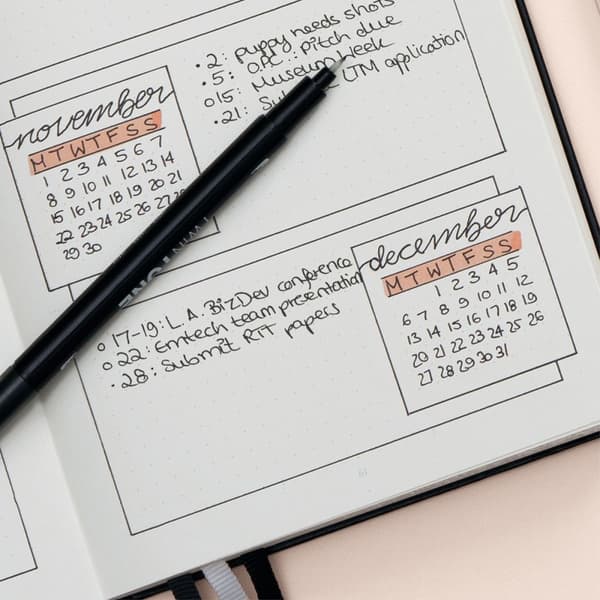 november
M T W T F S S
1 2 3 4 5 6 7
8 9 10 11 12 13 14
15 16 17 18 19 20 21
22 23 24 25 26 27
29 30
• 2: puppy needs shots
• 5: O.P.C.: Pitch due
o 15: Museum Week
• 21: application
TWINTONE
o 17-19: L.A. BizDev conference
o 22: Emtech team presentation
• 28: Submit RTT papers
december
M T W T F S S
1 2 3 4 5
6 7 8 9 10 11 12
13 14 15 16 17 18 19
20 21 22 23 24 25 26
27 28 29 30 31